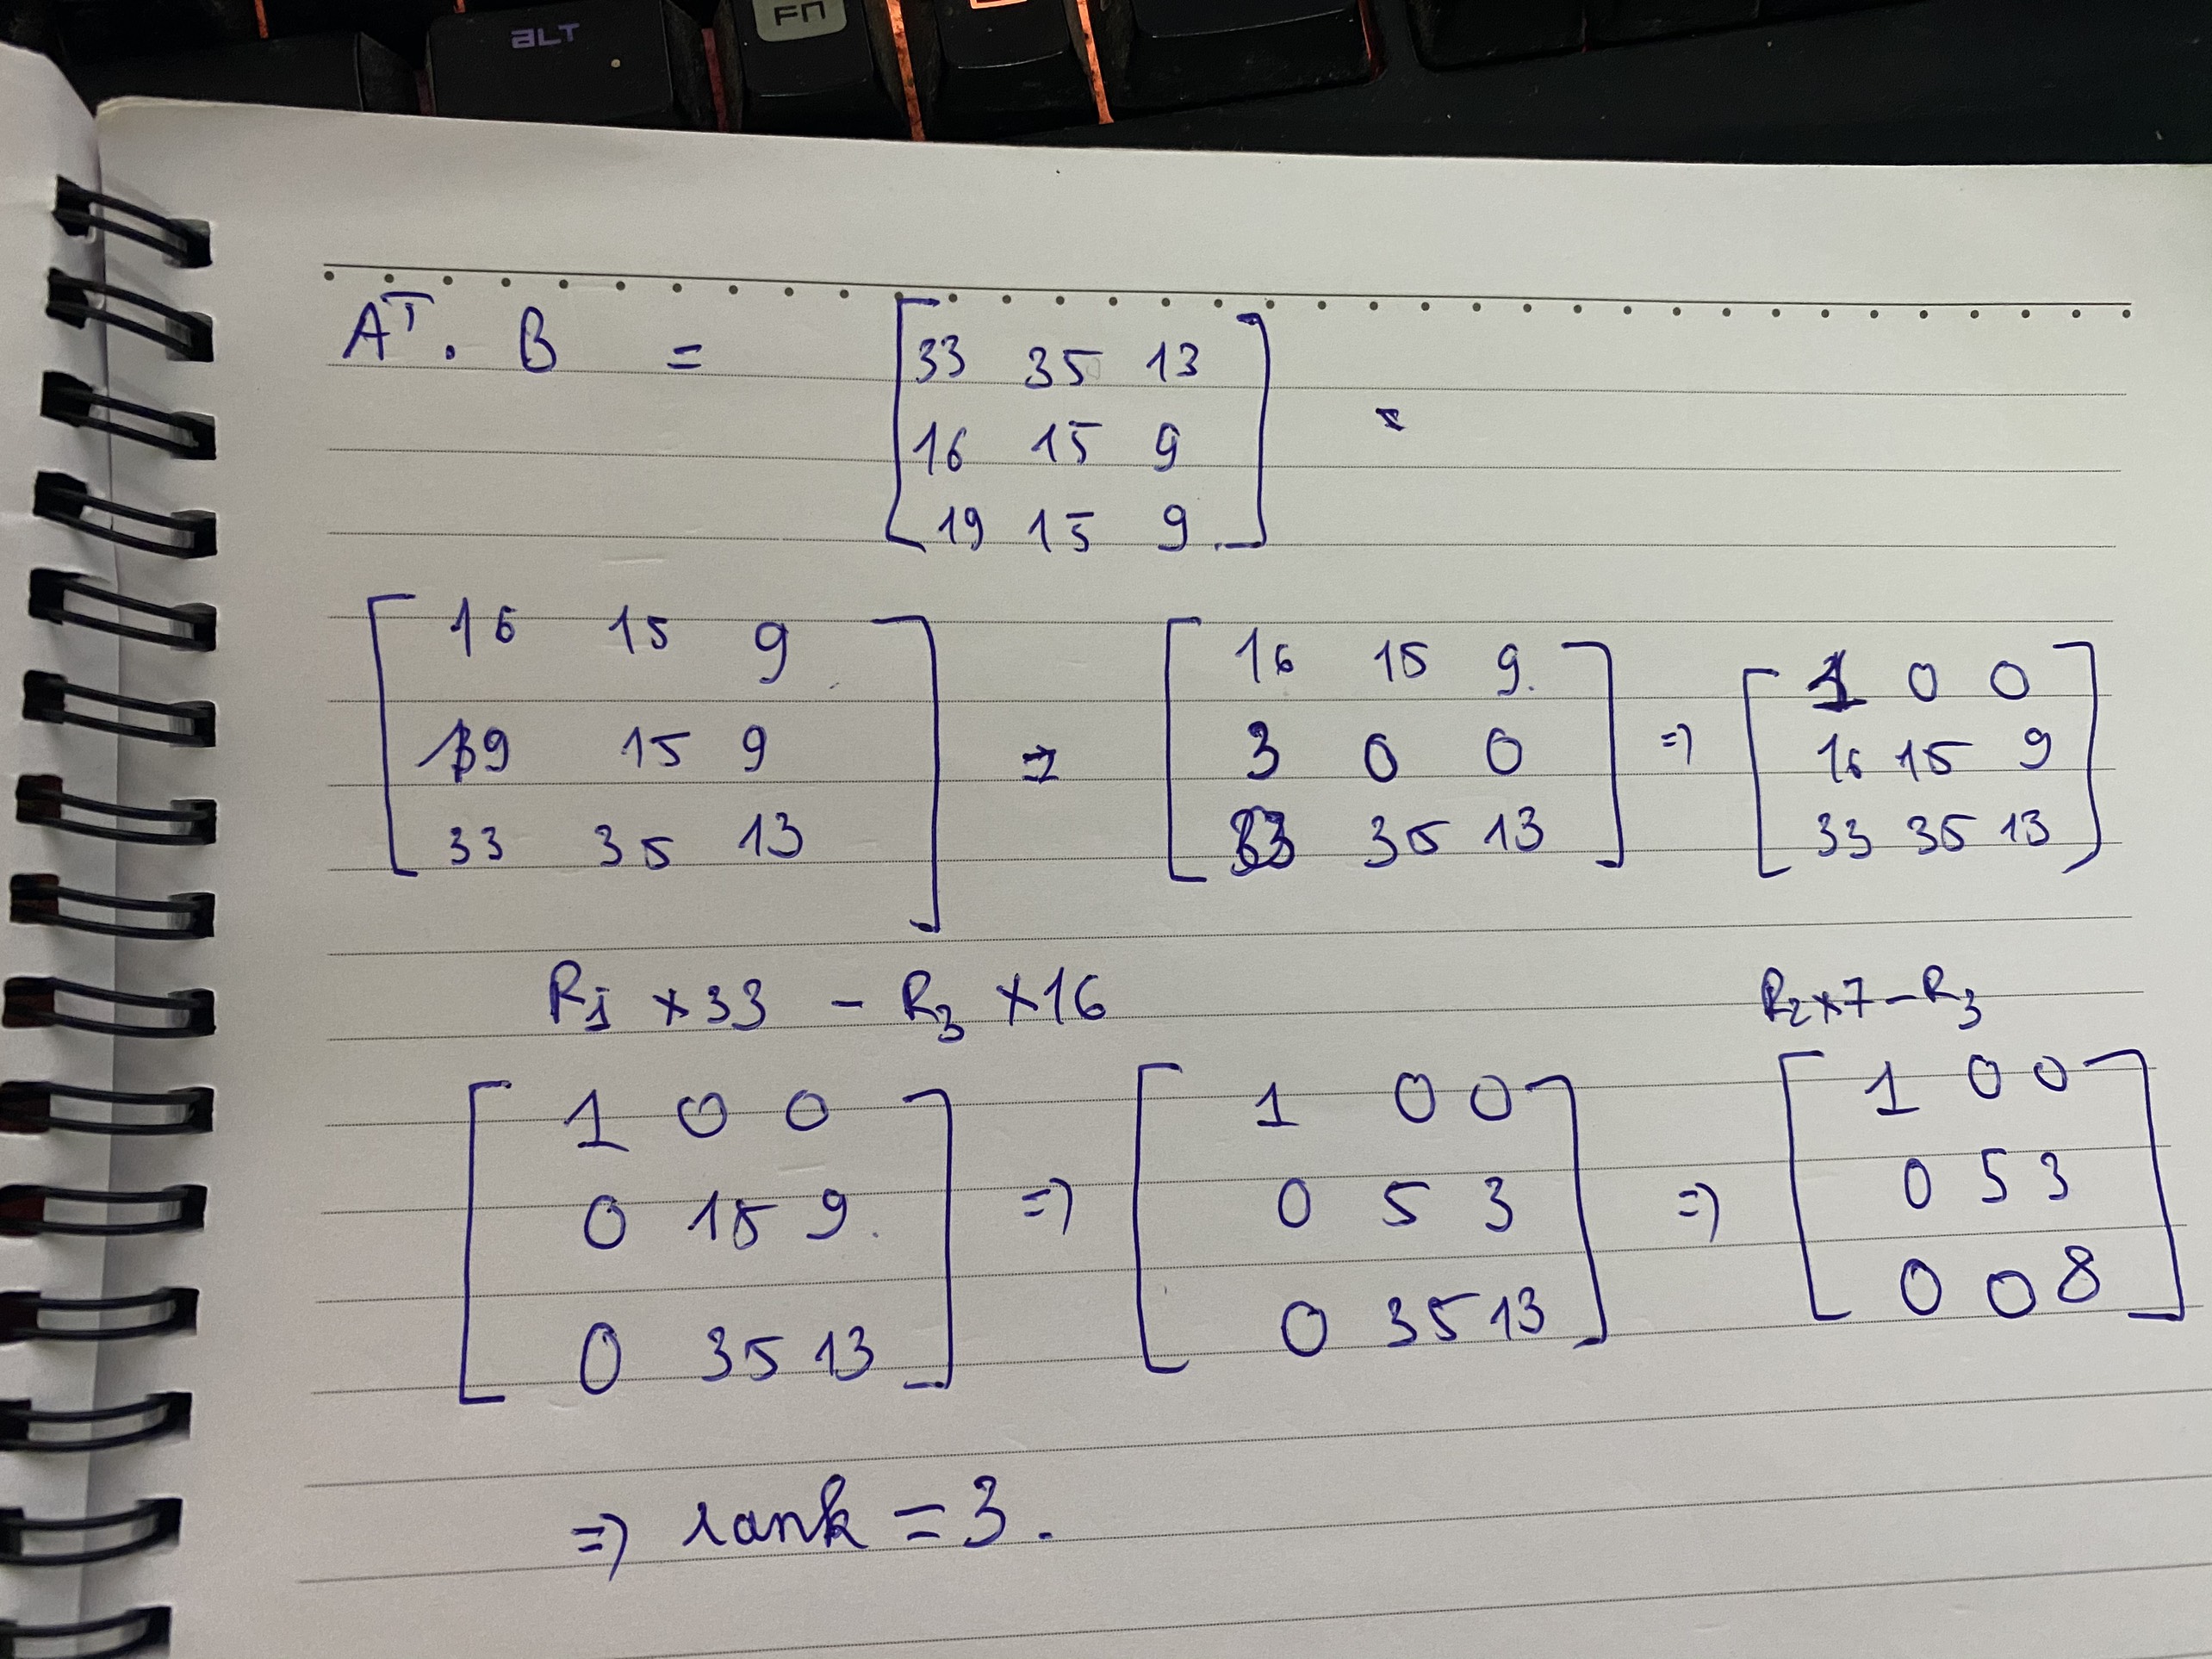 ALT
Fn
Aᵀ . B = [33 35 13
16 15 9
19 15 9]
[16 15 9
19 15 9
33 35 13] ⇒ [16 15 9
3 0 0
33 35 13] ⇒ [1 0 0
16 15 9
33 35 13]
R₁ × 33 - R₃ × 16
R₂ × 7 - R₃
[1 0 0
0 15 9
0 35 13] ⇒ [1 0 0
0 5 3
0 35 13] ⇒ [1 0 0
0 5 3
0 0 8]
⇒ rank = 3.